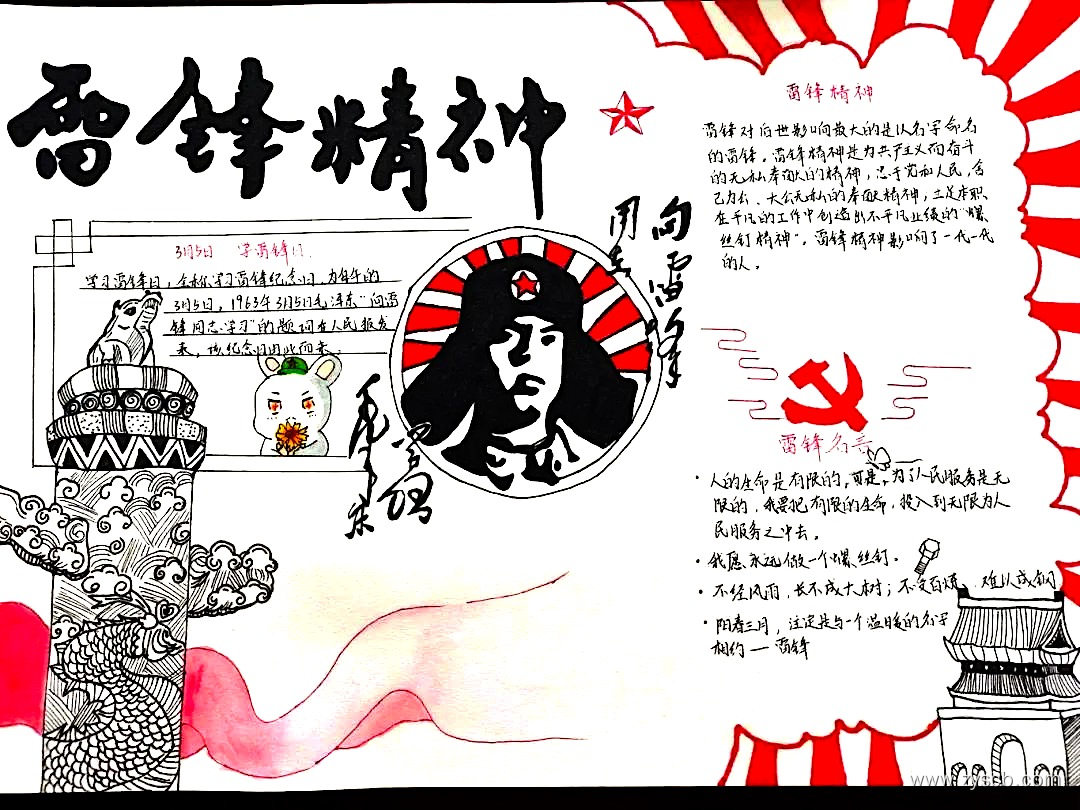 雷锋精神
3月5日 学雷锋日
学习雷锋日，全称学习雷锋纪念日，为每年的
3月5日，1963年3月5日毛泽东“向雷
锋同志学习”的题词在人民报发
表，该纪念日由此而来。
向雷锋
同志
学习
毛泽东
雷锋精神
雷锋对后世影响最大的是以名字命名
的雷锋。雷锋精神是为共产主义而奋斗
的无私奉献的精神，忠于党和人民，舍
己为公、大公无私的奉献精神；立足本职
在平凡的工作中创造出不平凡业绩的“螺
丝钉精神”。雷锋精神影响了一代一代
的人。
雷锋名言
·人的生命是有限的，可是，为了人民服务是无
限的，我要把有限的生命，投入到无限为人
民服务之中去。
·我愿永远做一个螺丝钉。
·不经风雨，长不成大树；不受百炼，难以成钢
·阳春三月，注定是与一个温暖的名字
相约——雷锋
www.zyssb.com